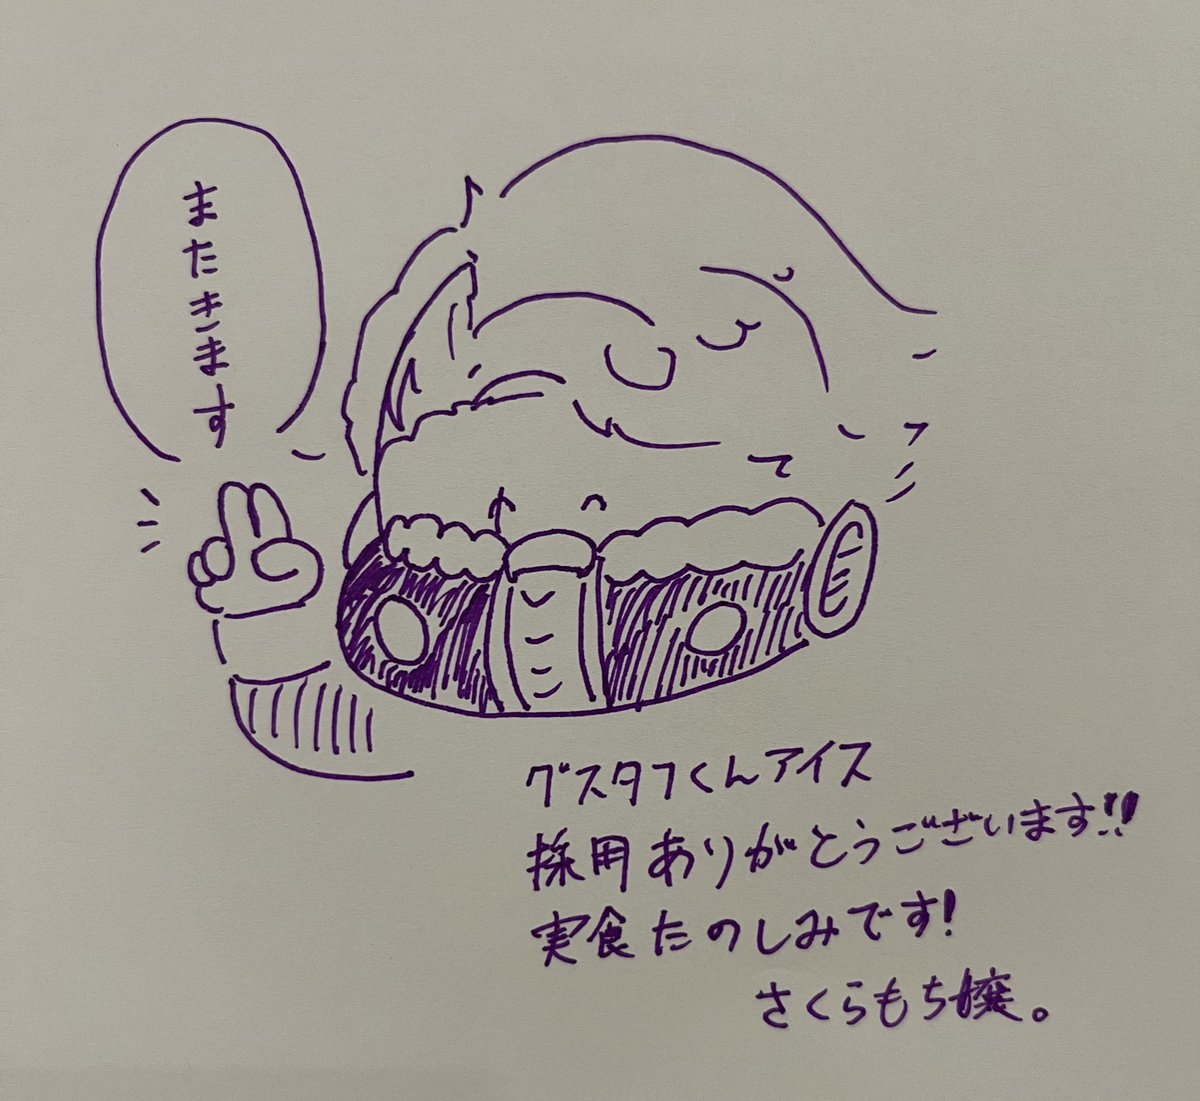 またきます
グスタフくんアイス
採用ありがとうございます!!
実食たのしみです!
さくらもち嬢。